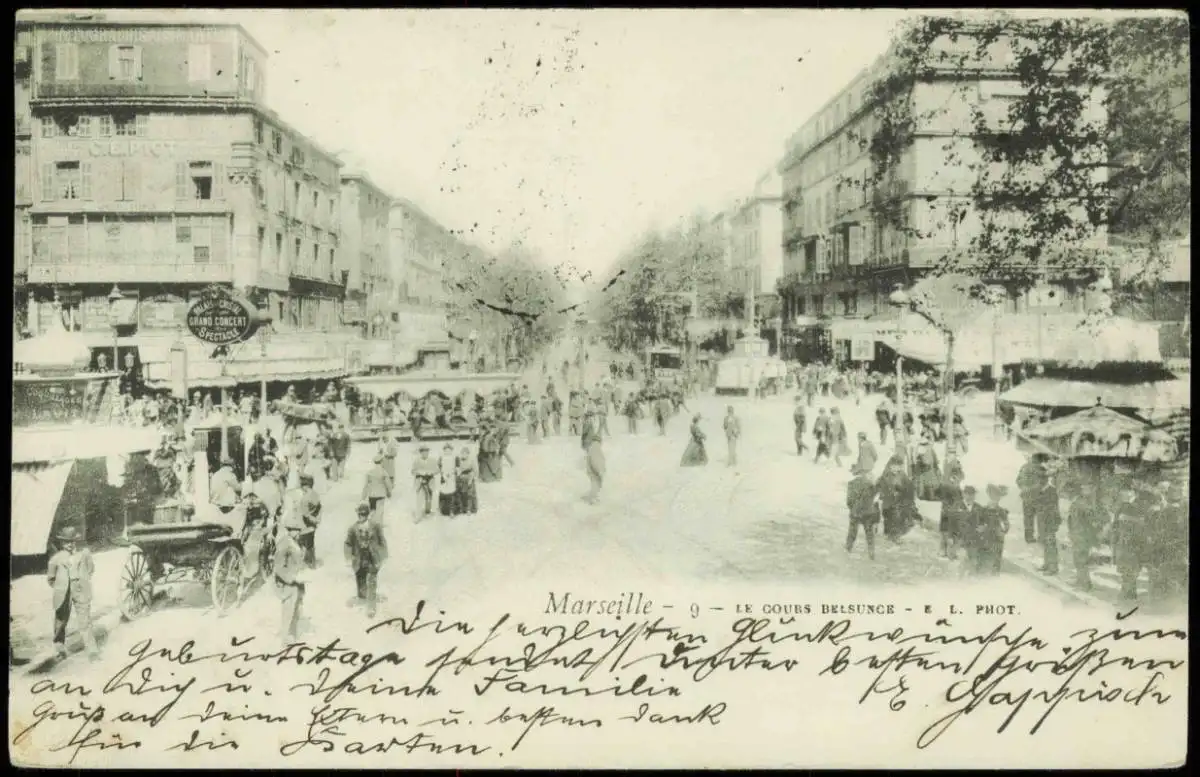 C. E. PIOT
PALAIS DE CRISTAL
GRAND CONCERT
SPECTACLE
Marseille - 9 - LE COURS BELSUNCE - E L. PHOT.
Die herzlichsten Glückwünsche zum
Geburtstage sendet unter besten Grüßen
an Dich u. Deine Familie E.
Gruß an deine Eltern u. besten Dank
für die Karten.